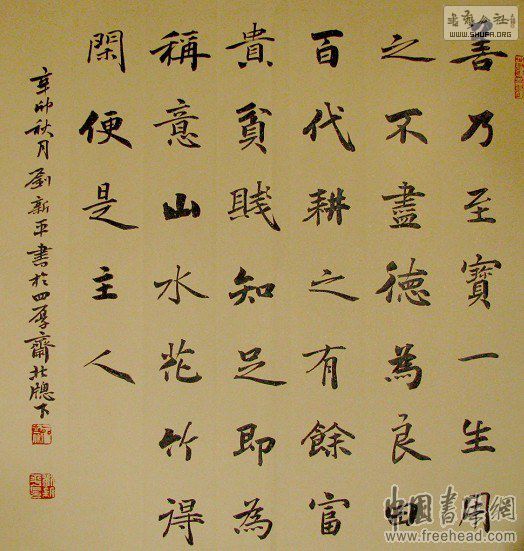 善乃至寶一生用
之不盡德為良田
百代耕之有餘富
貴貧賤知足即為
稱意山水花竹得
閑便是主人
辛卯秋月劉新平書於四厚齋北牕下
書法公社
WWW.SHUFA.ORG
中国書法網
www.freehead.com